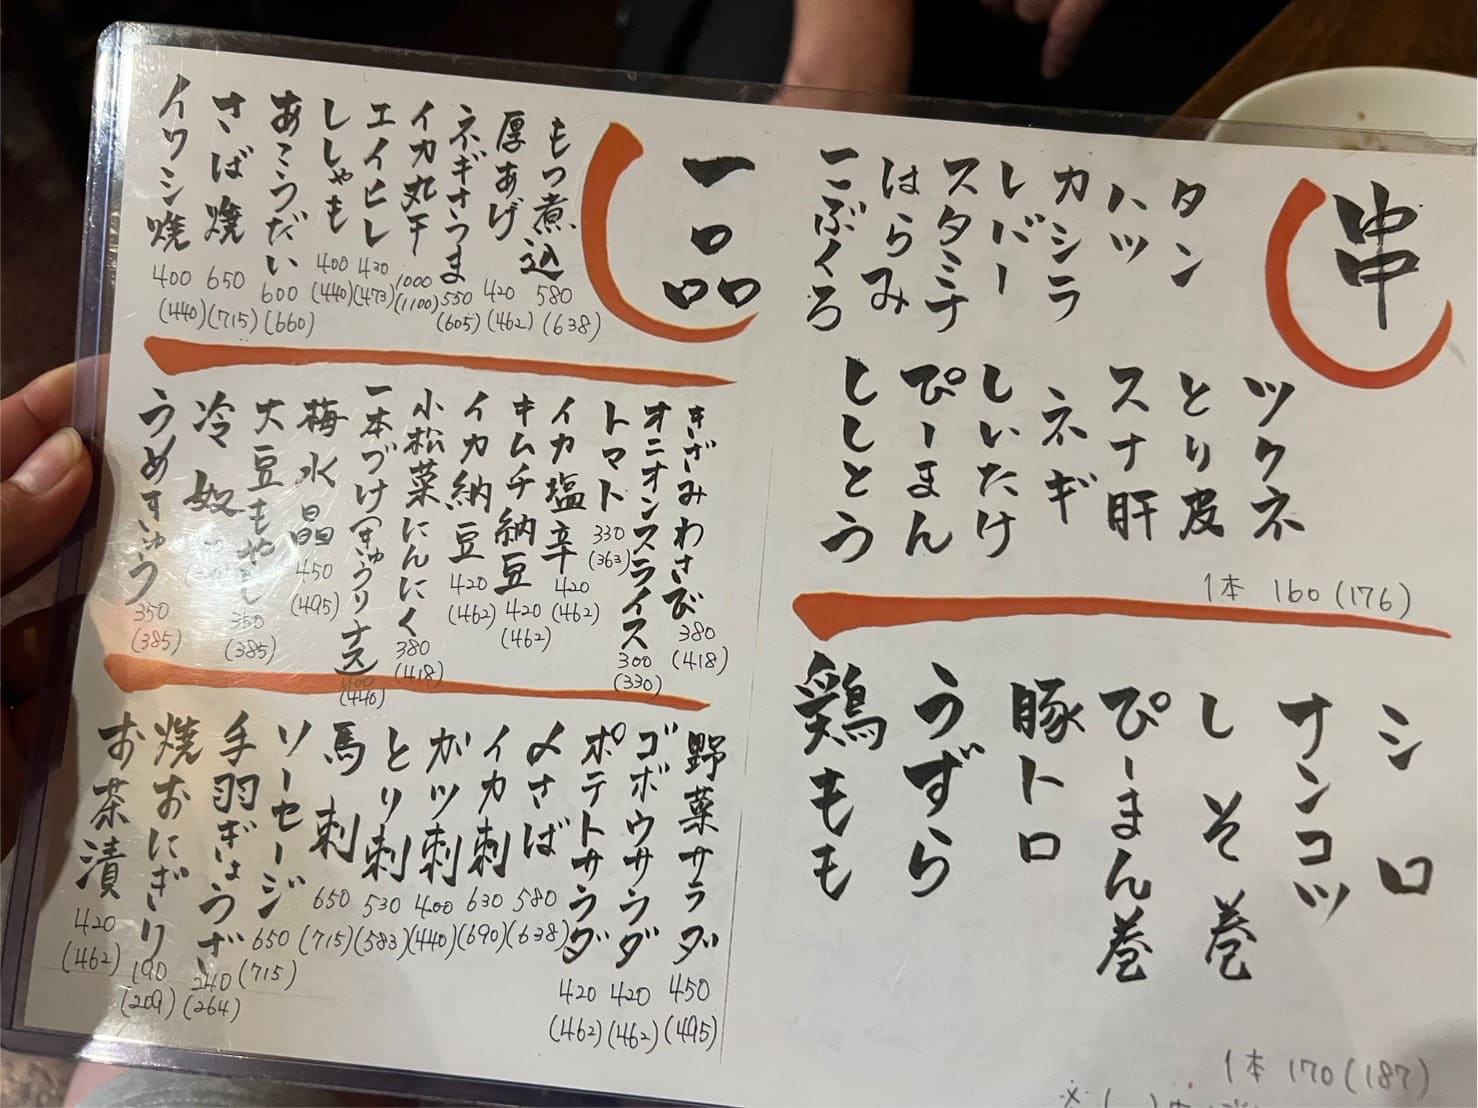 串
タン
ハツ
カシラ
レバー
スタミナ
はらみ
こぶくろ
ツクネ
とり皮
スナ肝
ネギ
しいたけ
ぴーまん
ししとう
1本 160(176)
シロ
ナンコツ
しそ巻
ぴーまん巻
豚トロ
うずら
鶏もも
1本 170(187)
一品
もつ煮込 580 (638)
厚あげ 420 (462)
ネギさつま 550 (605)
イカ丸干 1000 (1100)
エイヒレ 430 (473)
ししゃも 400 (440)
あこうだい 600 (660)
さば焼 650 (715)
イワシ焼 400 (440)
きざみわさび 380 (418)
オニオンスライス 300 (330)
トマト 330 (363)
イカ塩辛 420 (462)
キムチ納豆 420 (462)
イカ納豆 420 (462)
小松菜にんにく 380 (418)
一本づけ(きゅうり ナス) 400 (440)
梅水晶 450 (495)
大豆もやし 350 (385)
冷奴
うめきゅう 350 (385)
野菜サラダ 450 (495)
ゴボウサラダ 420 (462)
ポテトサラダ 420 (462)
〆さば 580 (638)
イカ刺 630 (690)
ガツ刺 400 (440)
とり刺 530 (583)
馬刺 650 (715)
ソーセージ 650 (715)
手羽ぎょうざ 240 (264)
焼おにぎり 190 (209)
お茶漬 420 (462)